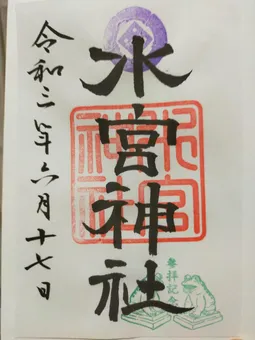 水宮神社
令和三年六月十七日
水宮神社
参拝記念